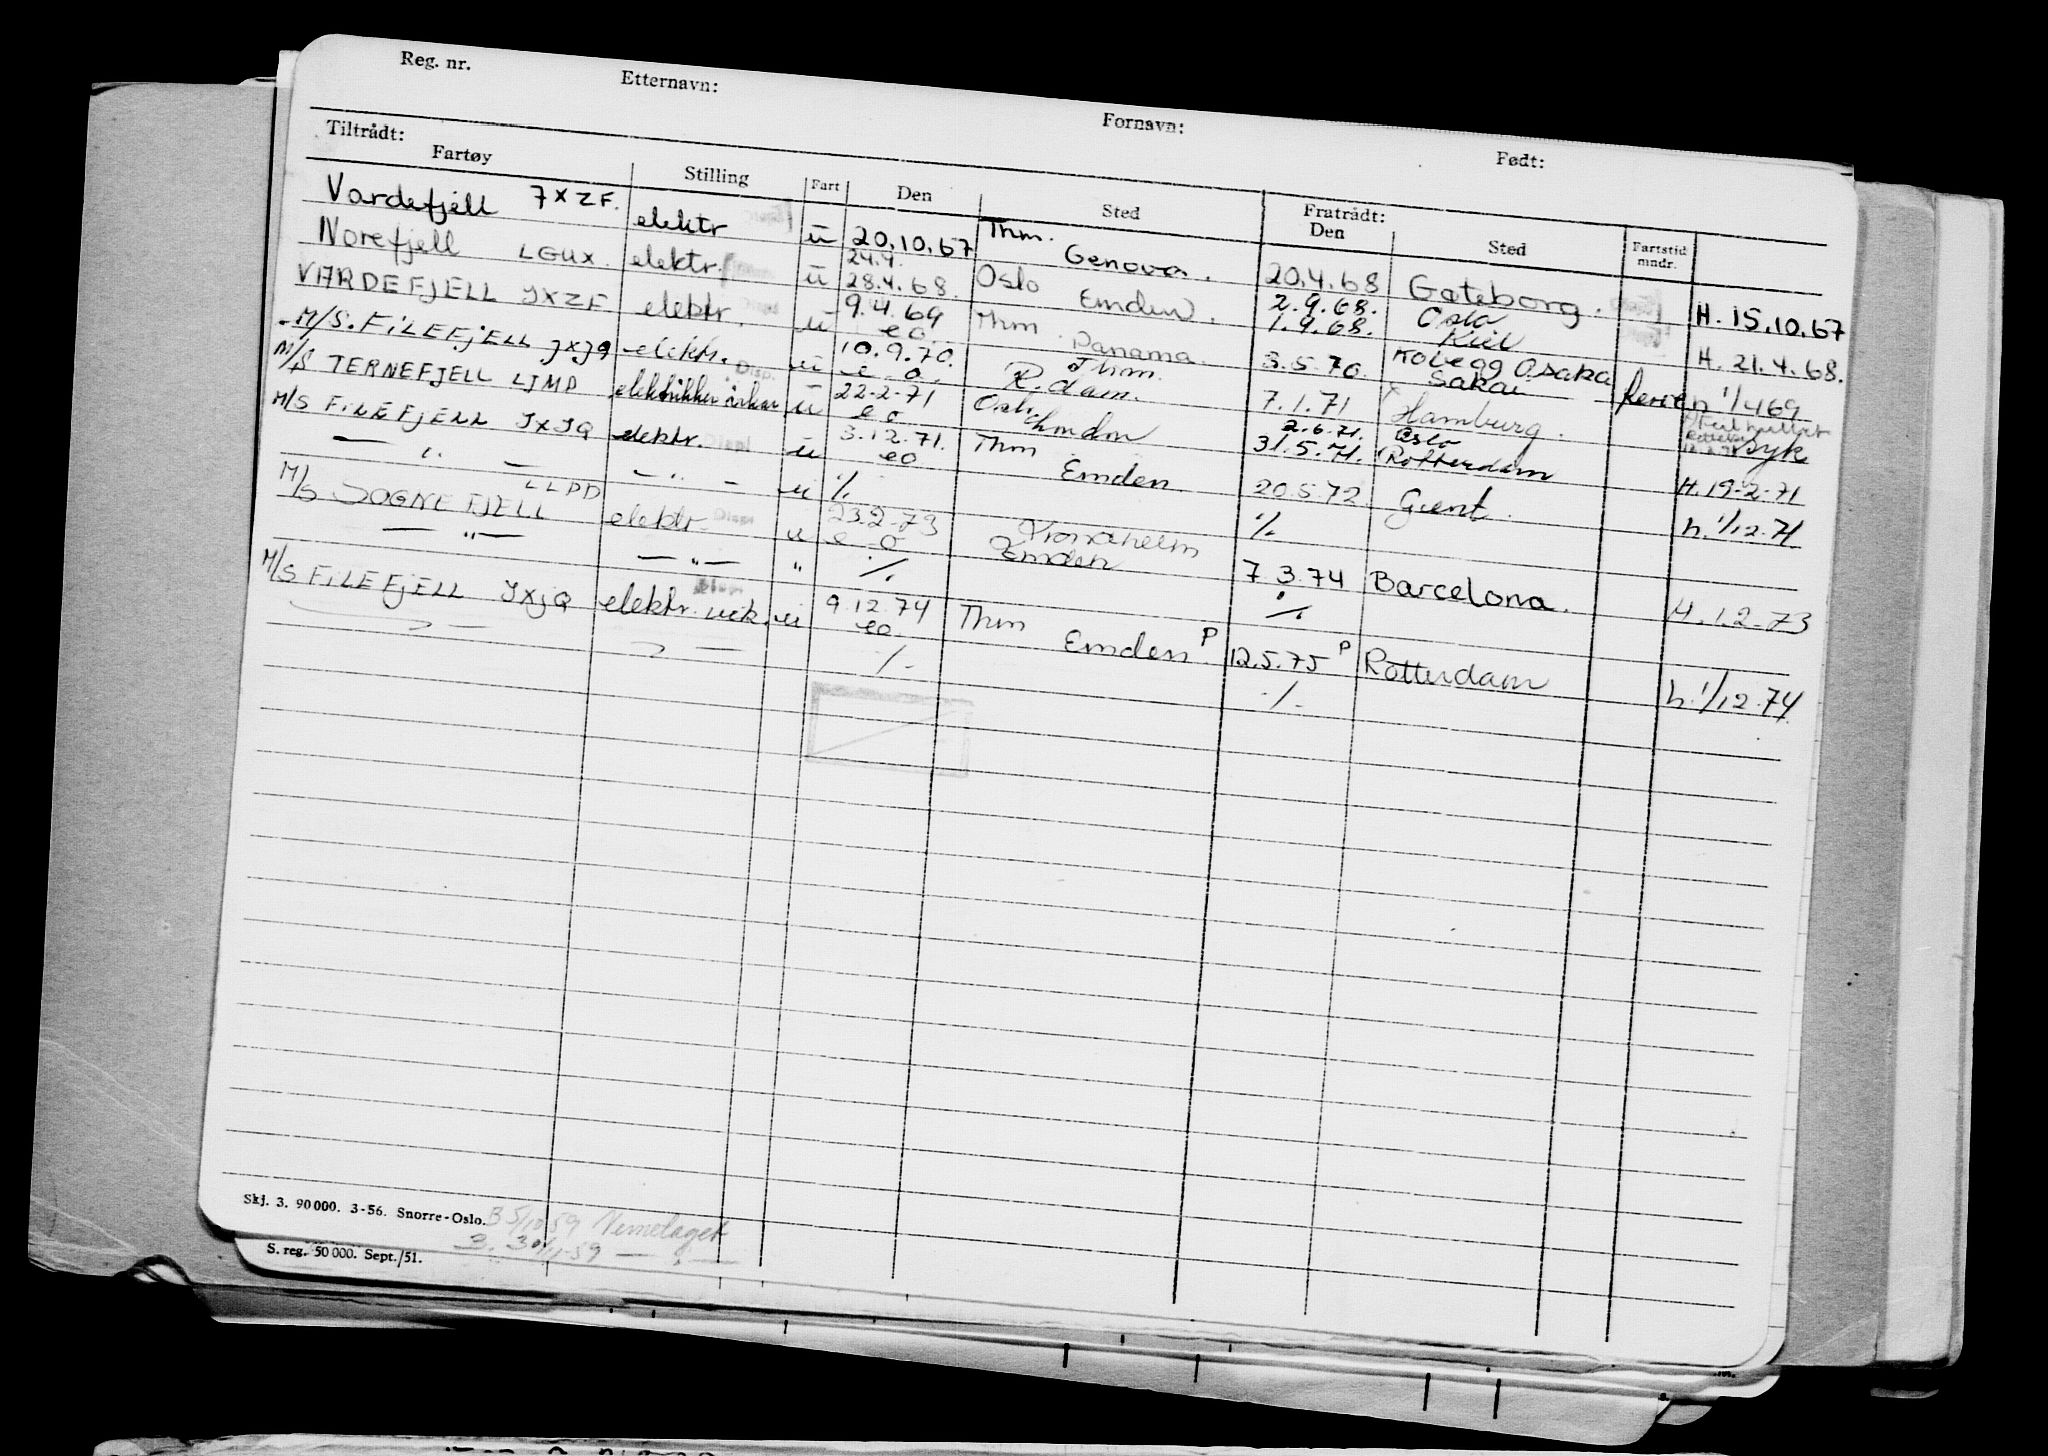 Reg. nr. Etternavn: Fornavn: Født:
Tiltrådt: Fratrådt:
Fartøy Stilling Fart Den Sted Den Sted Fartstid mndr.
Vardefjell JXZF. elektr ü 20.10.67 Thm. Genova. 20.4.68 Gøteborg. H. 15.10.67
Norefjell LGUX. elektr. ü 24.4. 28.4.68. Oslo Emden. 2.9.68. 1.9.68. Oslo Kiel H. 21.4.68.
VARDEFJELL JXZF elektr. ü 9.4.69 eo Thm Panama. 3.5.70 Kobe og Osaka Sakai h 1/4 69
M/S. FILEFJELL JXJQ elektr. ü 10.9.70. e.o. Thm. R.dam. 7.1.71 Hamburg. Syk
M/S TERNEFJELL LJMD elektrikker ü 22.2.71 eo Oslo Emden 2.6.71. 31.5.71. Oslo Rotterdam H. 19.2.71
M/S FILEFJELL JXJQ elektr. ü 3.12.71. eo Thm Emden 20.5.72 Gent. h. 1/12.71
— " — — " — u ·/. ·/.
M/S SOGNEFJELL LLPD elektr. u 23.2.73 e o Trondheim Emden 7.3.74 Barcelona. H. 1.2.73
— " — — " — " ·/. ·/.
M/S FILEFJELL JXJQ elektr. vik. ü 9.12.74 eo. Thm Emden P 12.5.75 P Rotterdam h. 1/12.74
·/. ·/.
Skj. 3. 90 000. 3-56. Snorre-Oslo. B 5/10 59
3. 30/11-59 — " —
S. reg. 50 000. Sept./51.